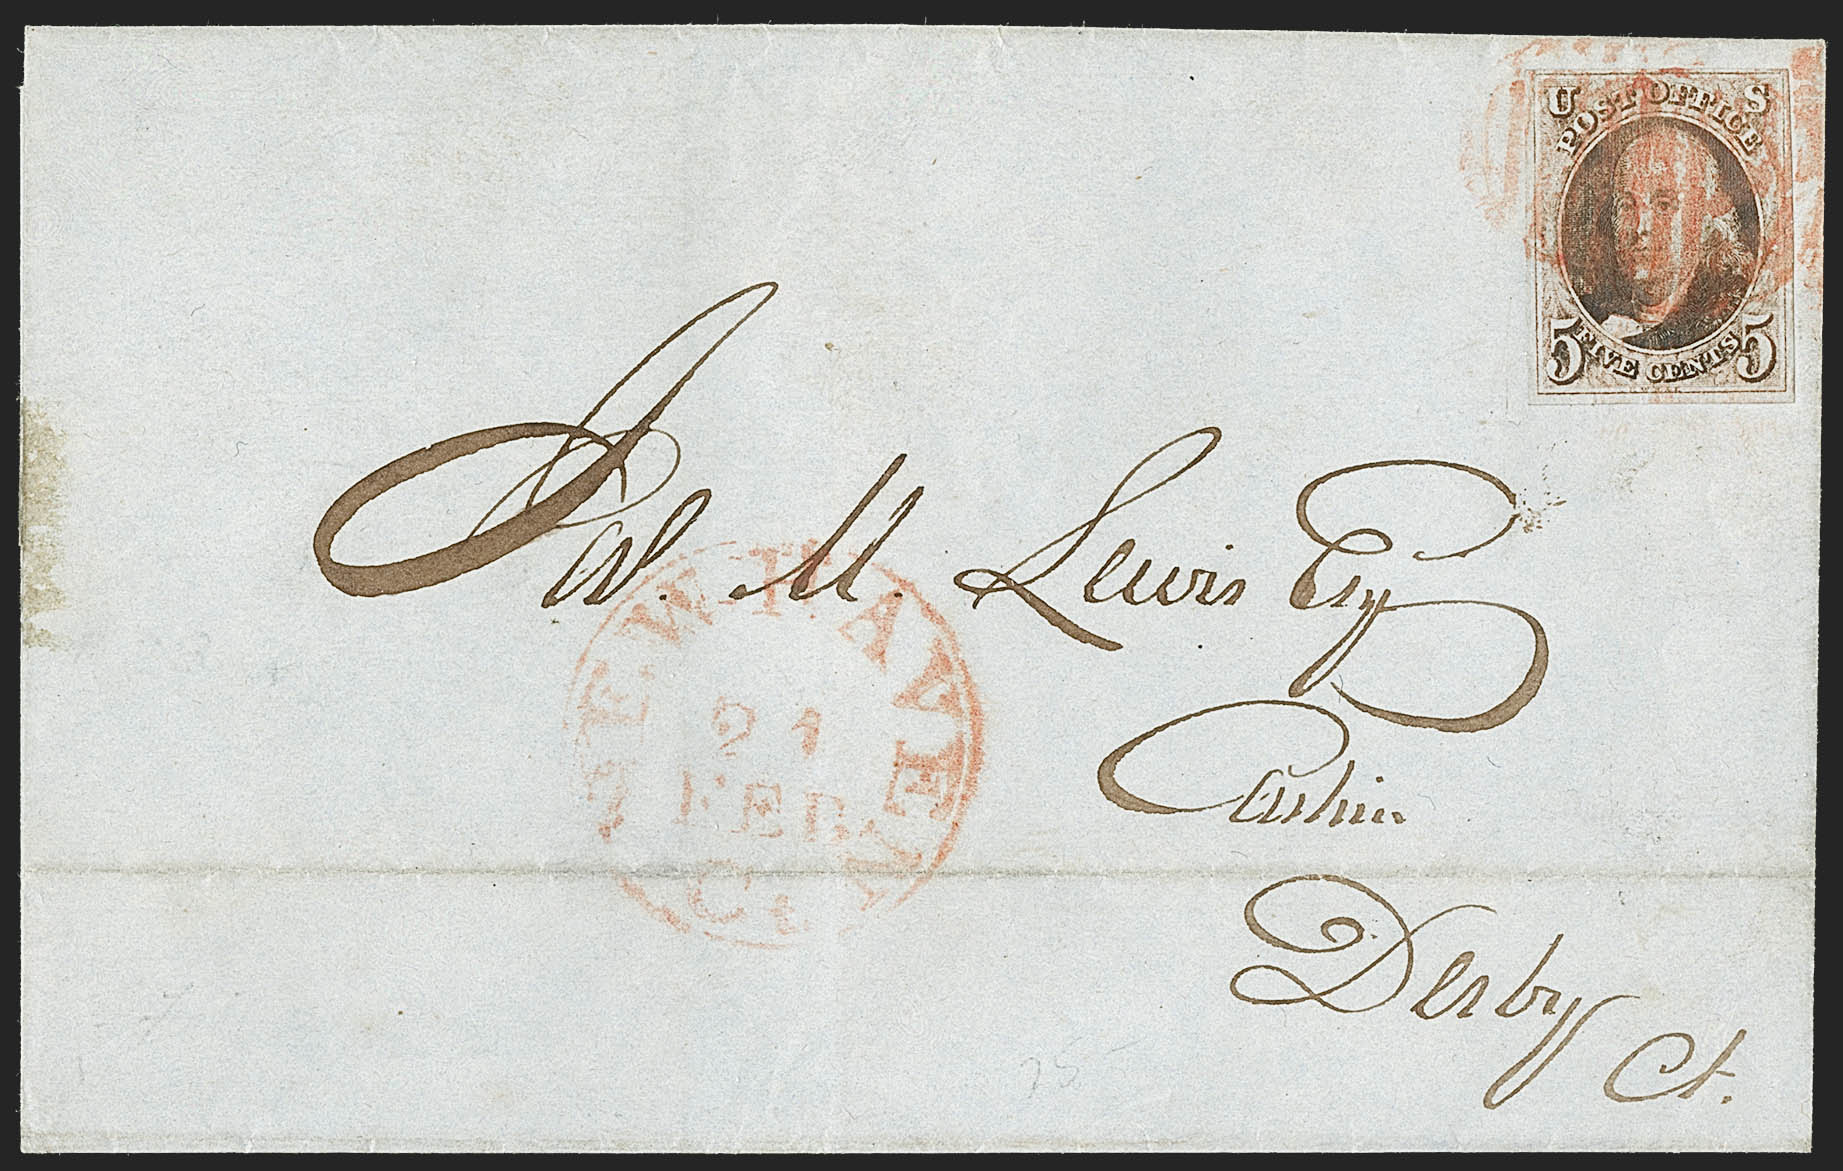 U S
POST OFFICE
5 FIVE CENTS 5
M. Lewis Esq
NEW HAVEN
21
FEB
Ct
Cashier
Derby
Ct.